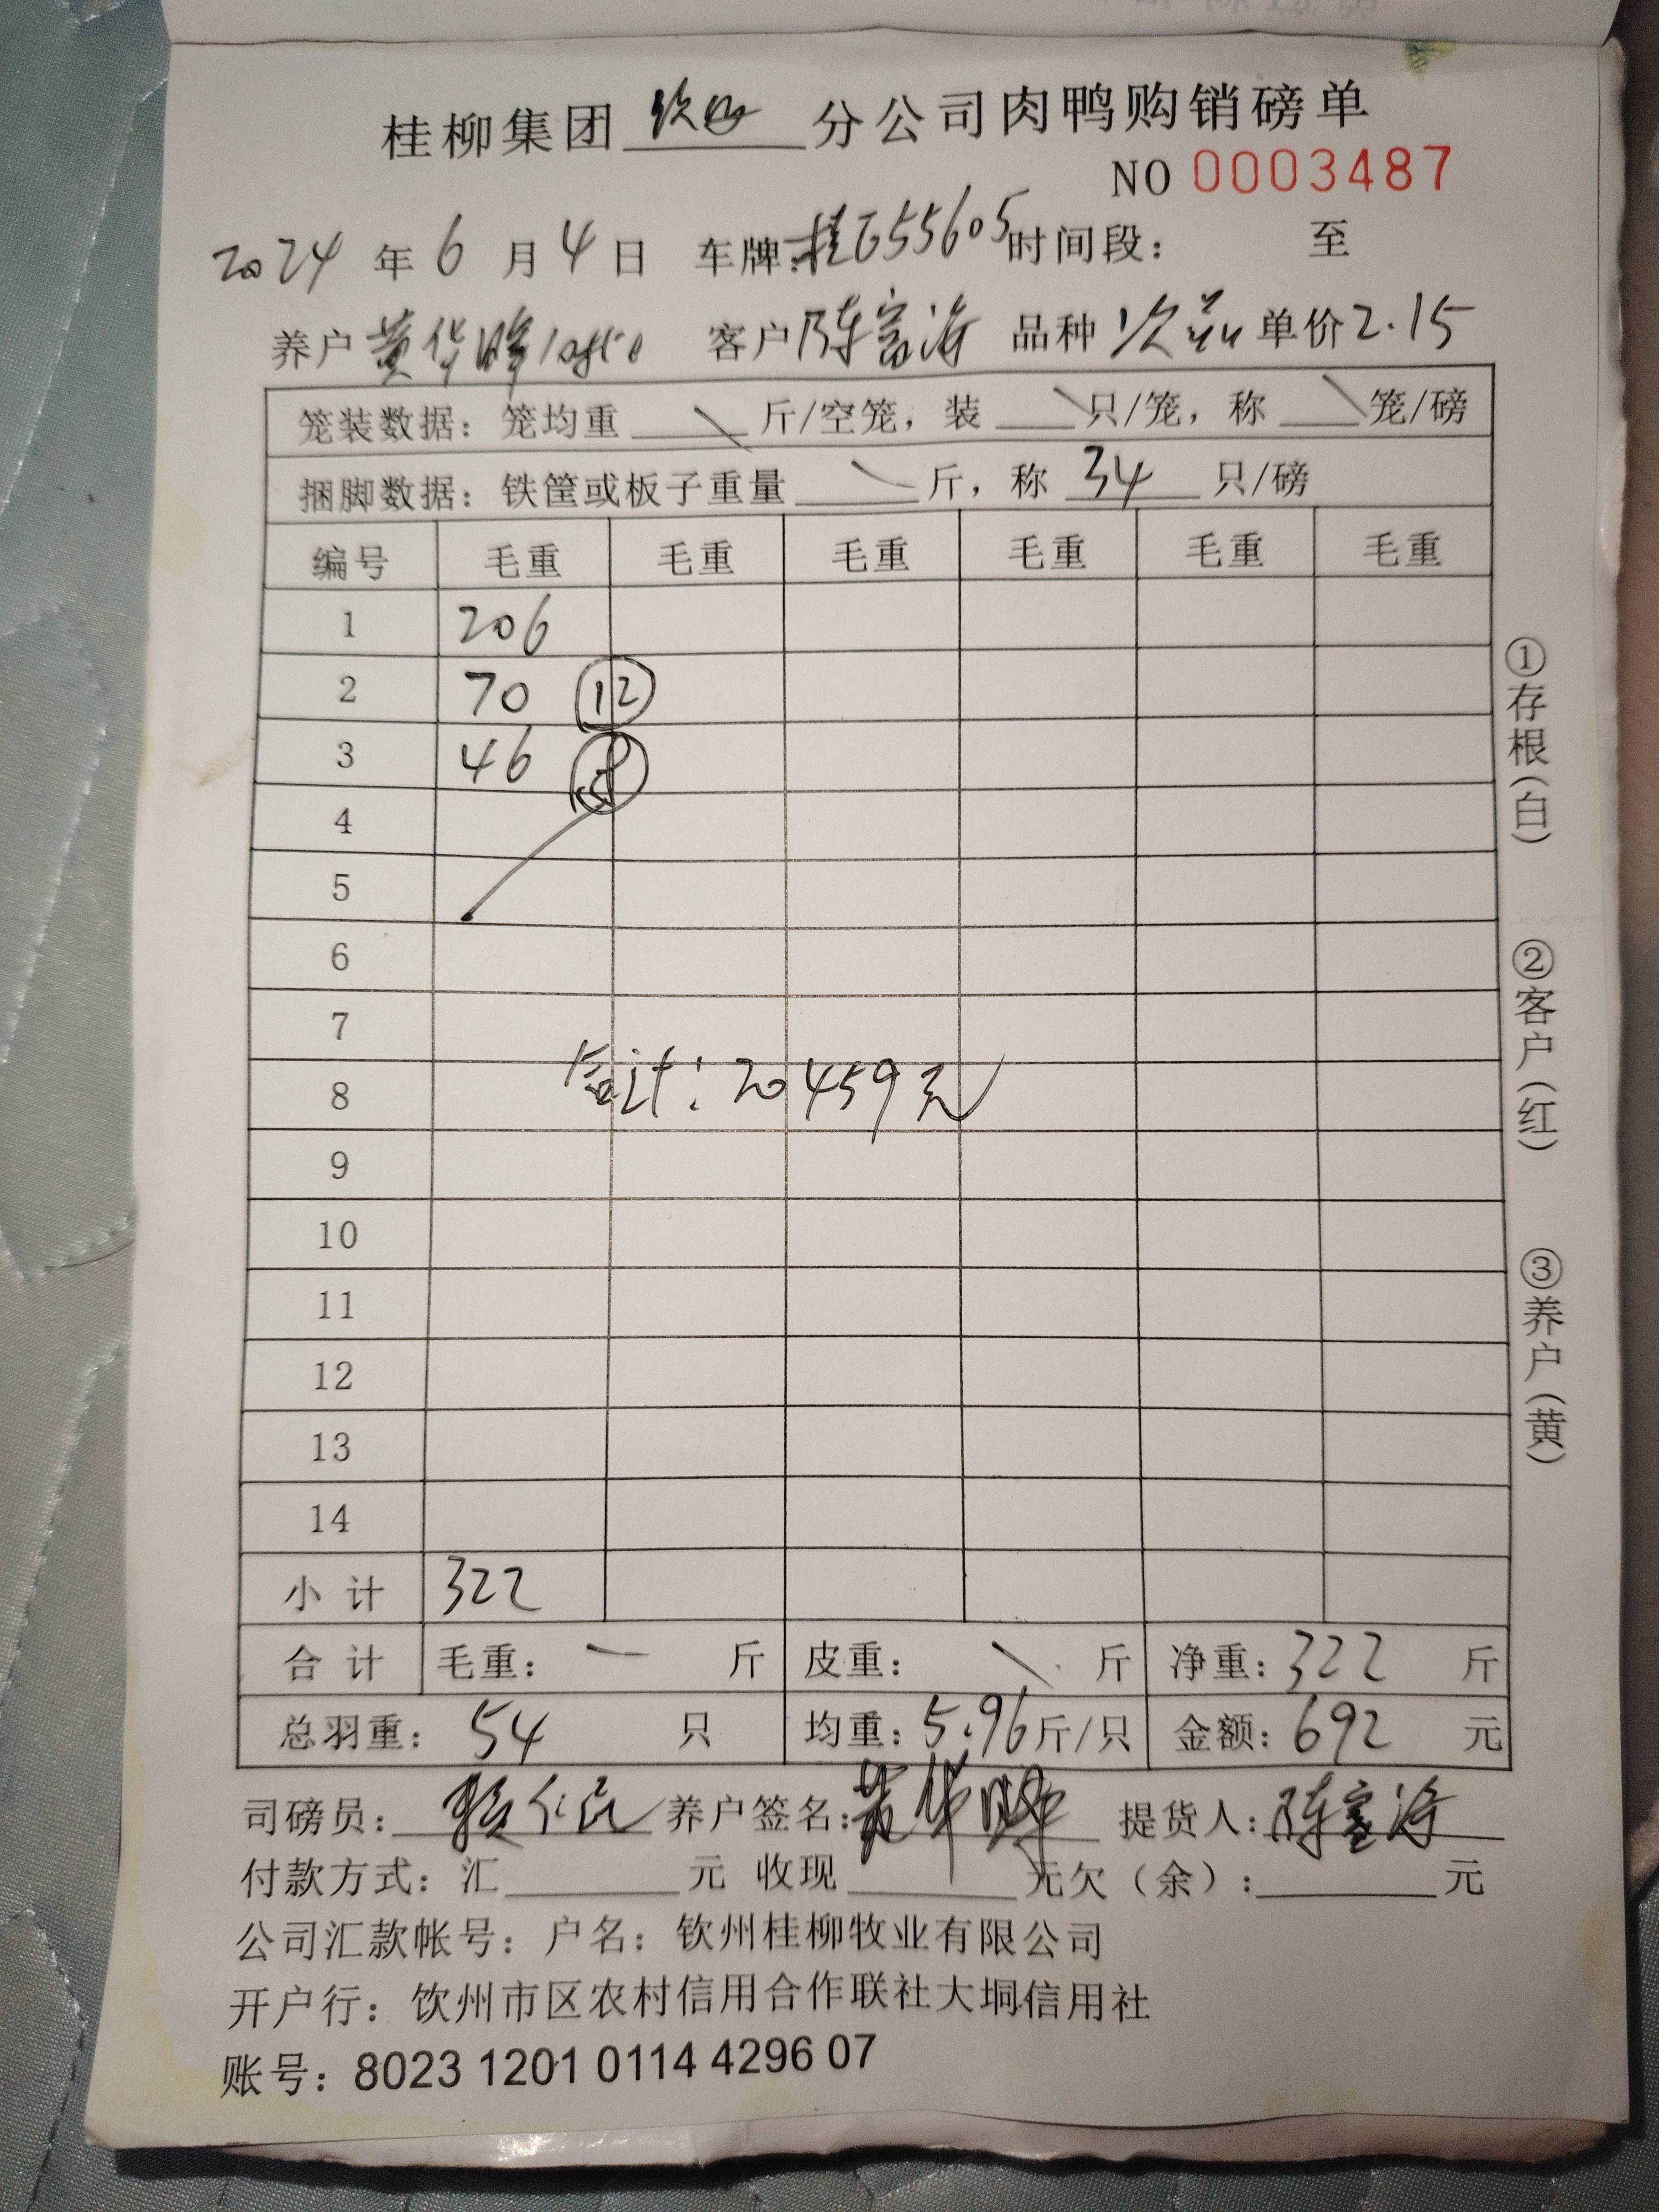 桂柳集团 钦州 分公司肉鸭购销磅单
NO 0003487
2024 年 6 月 4 日 车牌: 桂E55605 时间段: 至
养户 黄华峰 客户 陈富海 品种 次品 单价 2.15
笼装数据: 笼均重 \ 斤/空笼, 装 \ 只/笼, 称 \ 笼/磅
捆脚数据: 铁筐或板子重量 \ 斤, 称 34 只/磅
编号 毛重 毛重 毛重 毛重 毛重 毛重
1 206
2 70 ⑫
3 46 ⑧
4
5
6
7
合计: 20459元
8
9
10
11
12
13
14
小 计 322
合 计 毛重: — 斤 皮重: \ 斤 净重: 322 斤
总羽重: 54 只 均重: 5.96 斤/只 金额: 692 元
司磅员: 养户签名: 黄华峰 提货人: 陈富海
付款方式: 汇 元 收现 元欠(余): 元
公司汇款帐号: 户名: 钦州桂柳牧业有限公司
开户行: 饮州市区农村信用合作联社大垌信用社
账号: 8023 1201 0114 4296 07
①存根(白)
②客户(红)
③养户(黄)